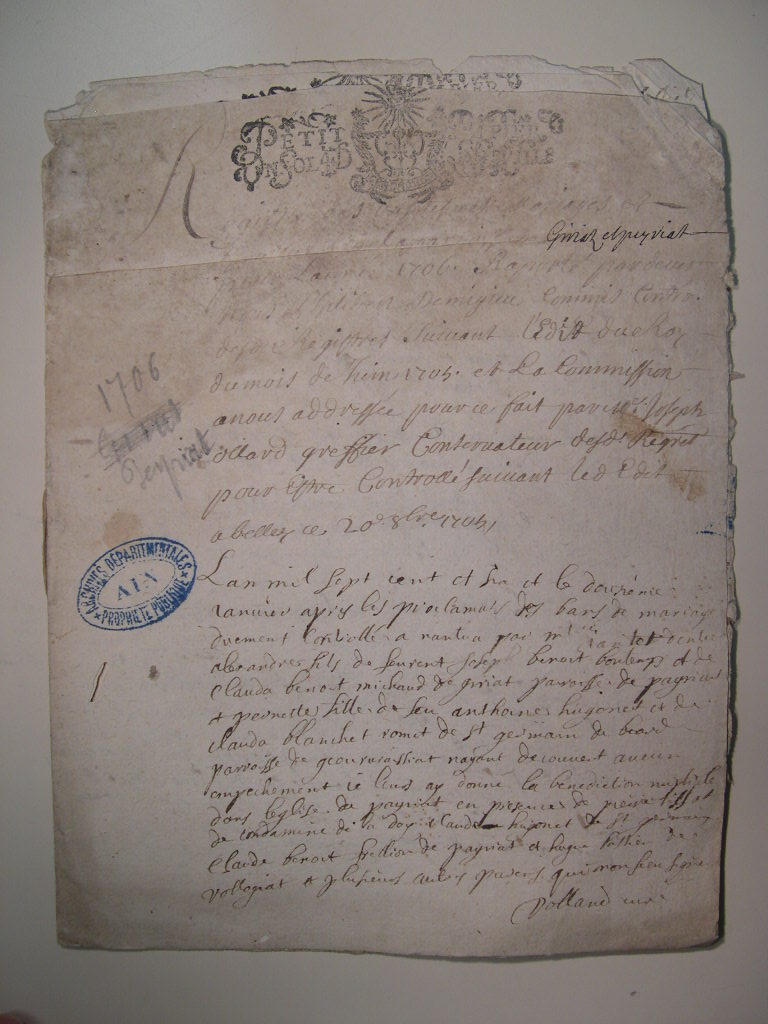 PETIT PAPIER
UN SOL 4 D
Registre des Baptesmes Mariages et
Giriat et peyriat
pour Lannée 1706. Raporté pardevant
nous Commis Contro.
desd. Registres suivant l'Edit du Roy
du mois de Juin 1705. et La Commission
a nous addressée pour ce fait par Me. Joseph
ollard greffier Conservateur desds Regret
pour Estre Controllé suivant led Edit
a belley ce 20e 8bre 1705,
1706
Giriat
Peyriat
ARCHIVES DÉPARTEMENTALES
AIN
PROPRIÉTÉ PUBLIQUE
Lan mil sept cent et six et le douzième
Janvier apres les proclamats des bans de mariage
duement Controlle a nantua par
alexandre fils de feurent Joseph benoit bontemp et de
Clauda benoit michaud de giriat paroisse de payriat
et pernette fille de feu anthoine hugonet et de
clauda blanchet romet de st germain de beard
parroisse de geovreissiat nayant decouvert aucun
empechement ie leurs ay donne la benediction nuptiale
dans leglise de payriat en presence de pierre
de Condamine de la doye Claude hugonet de st germain
Claude benoit de payriat et hugue
vollogniat et plusieurs autres parens qui mon sieu signe
Volland curé